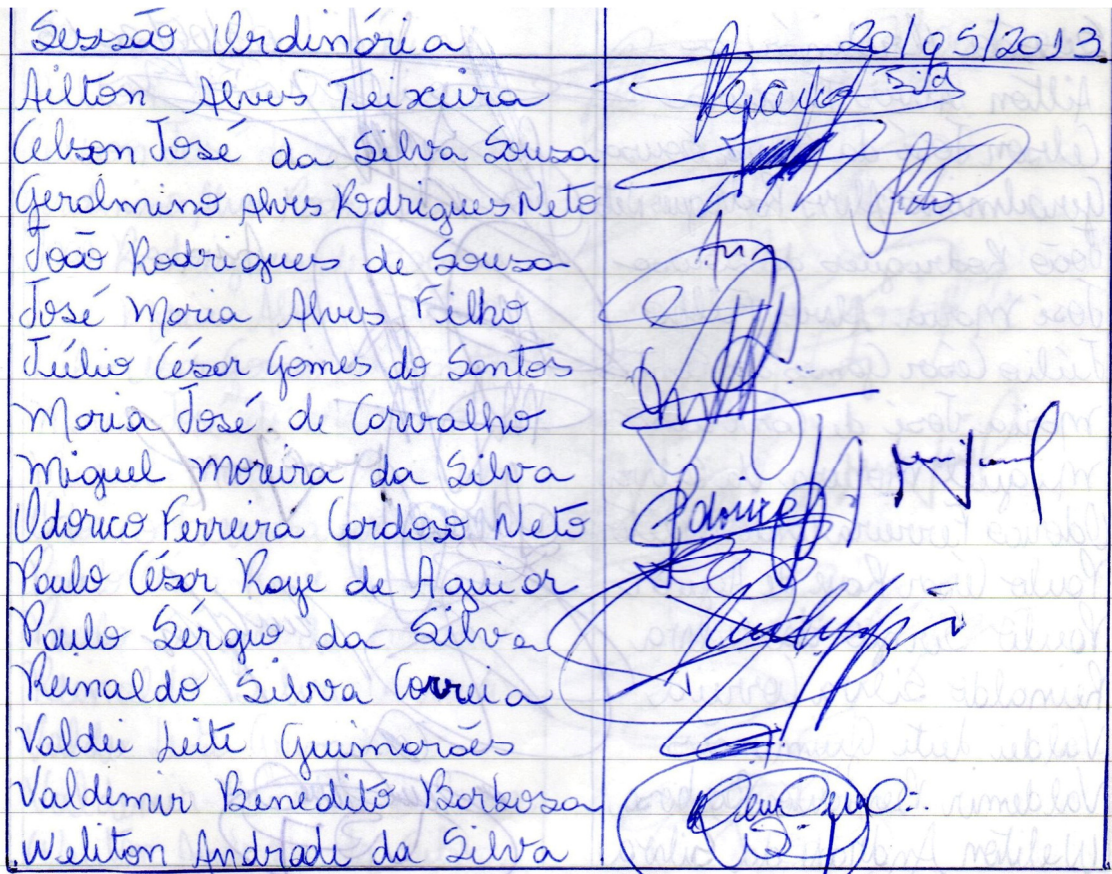 Sessão Ordinária 20/05/2013
Ailton Alves Teixeira
Celson José da Silva Sousa
Geralmino Alves Rodrigues Neto
João Rodrigues de Sousa
José Maria Alves Filho
Júlio César Gomes do Santos
Maria José de Carvalho
Miguel Moreira da Silva
Odorico Ferreira Cardoso Neto
Paulo César Raye de Aguiar
Paulo Sérgio da Silva
Reinaldo Silva Correia
Valdei Leite Guimarães
Valdemir Benedito Barbosa
Weliton Andrade da Silva